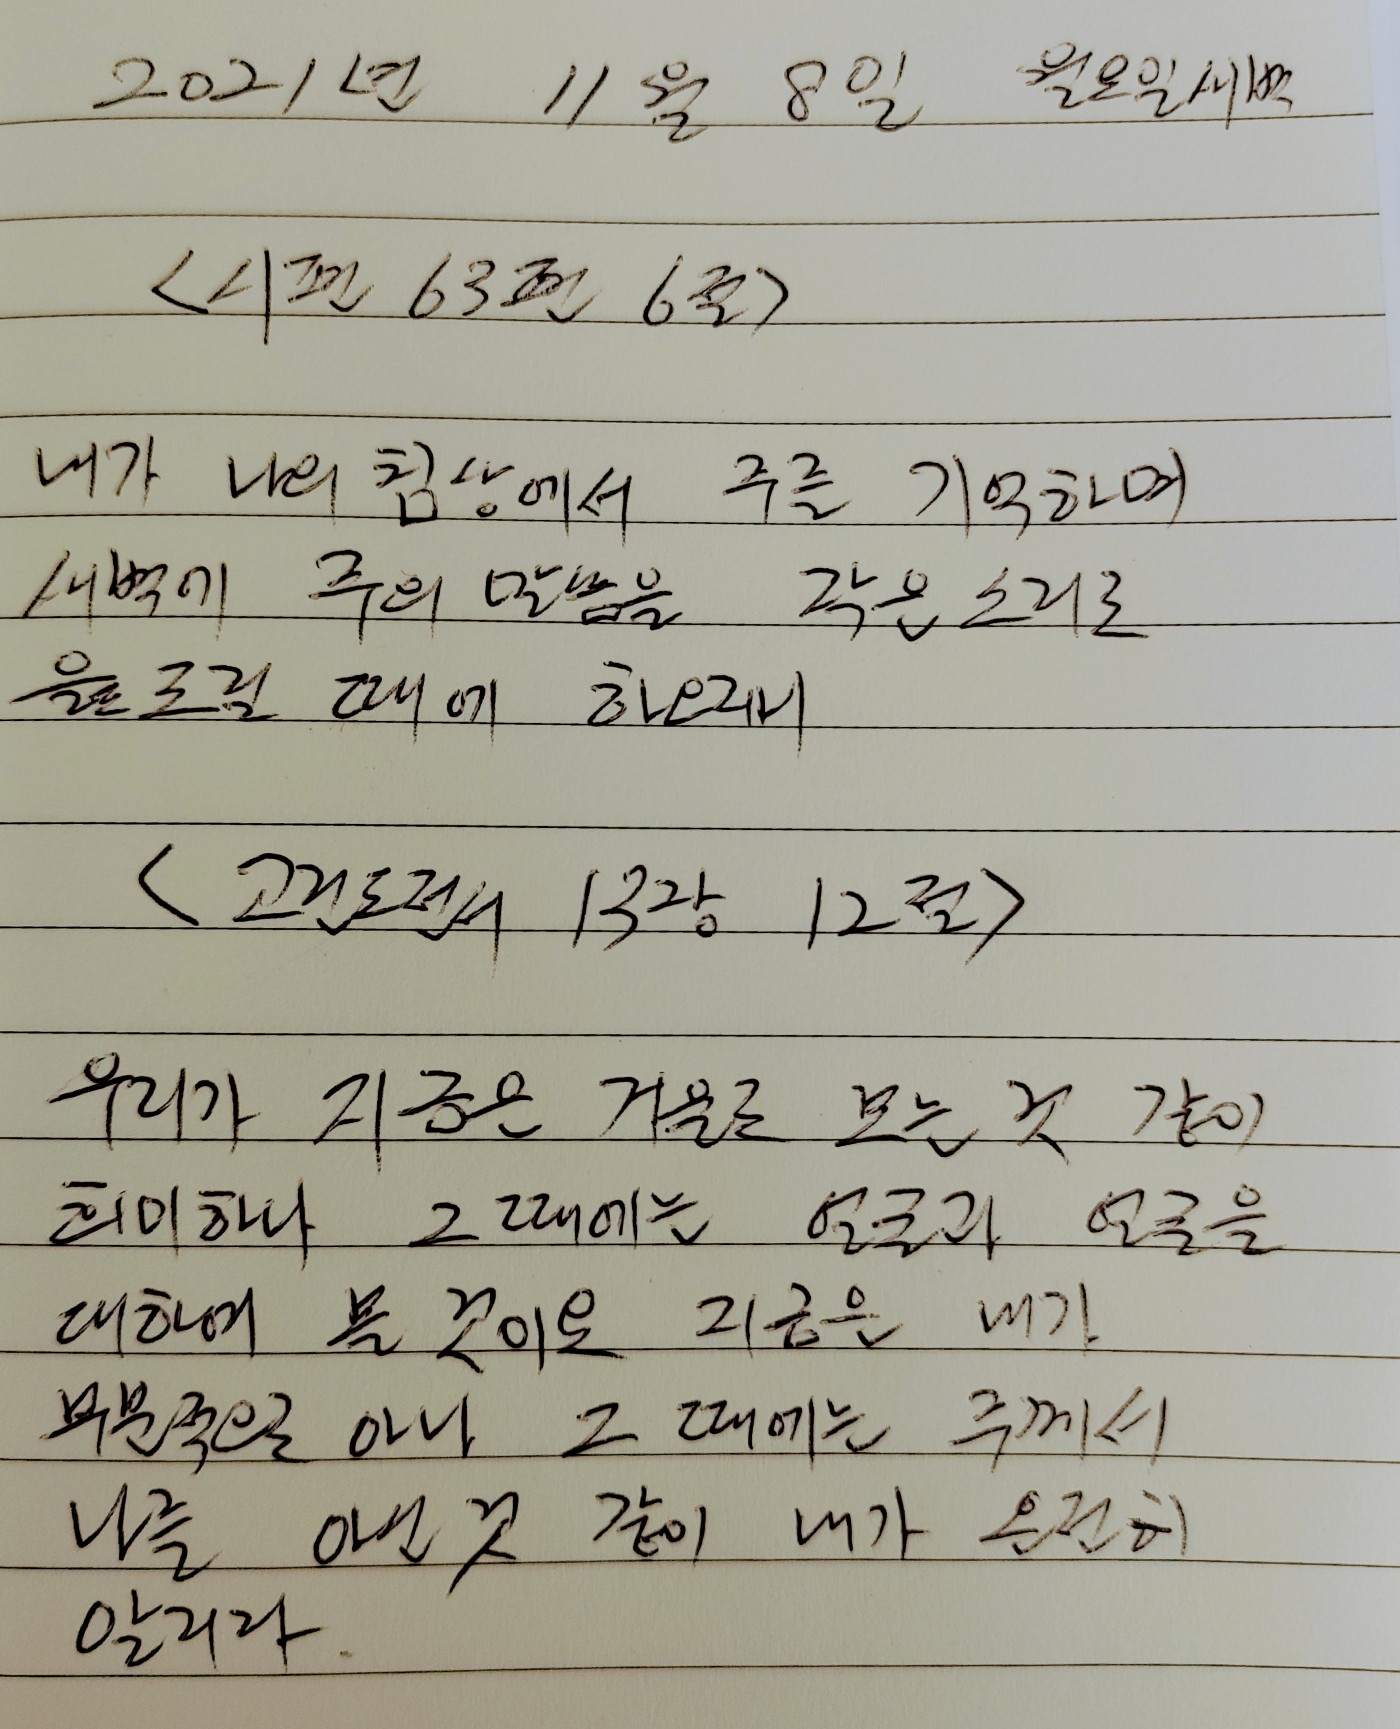 2021년 11월 8일 월요일새벽
<시편 63편 6절>
내가 나의 침상에서 주를 기억하며
새벽에 주의 말씀을 작은 소리로
읊조릴 때에 하오리니
<고린도전서 13장 12절>
우리가 지금은 거울로 보는 것 같이
희미하나 그 때에는 얼굴과 얼굴을
대하여 볼 것이요 지금은 내가
부분적으로 아나 그 때에는 주께서
나를 아신 것 같이 내가 온전히
알리라.